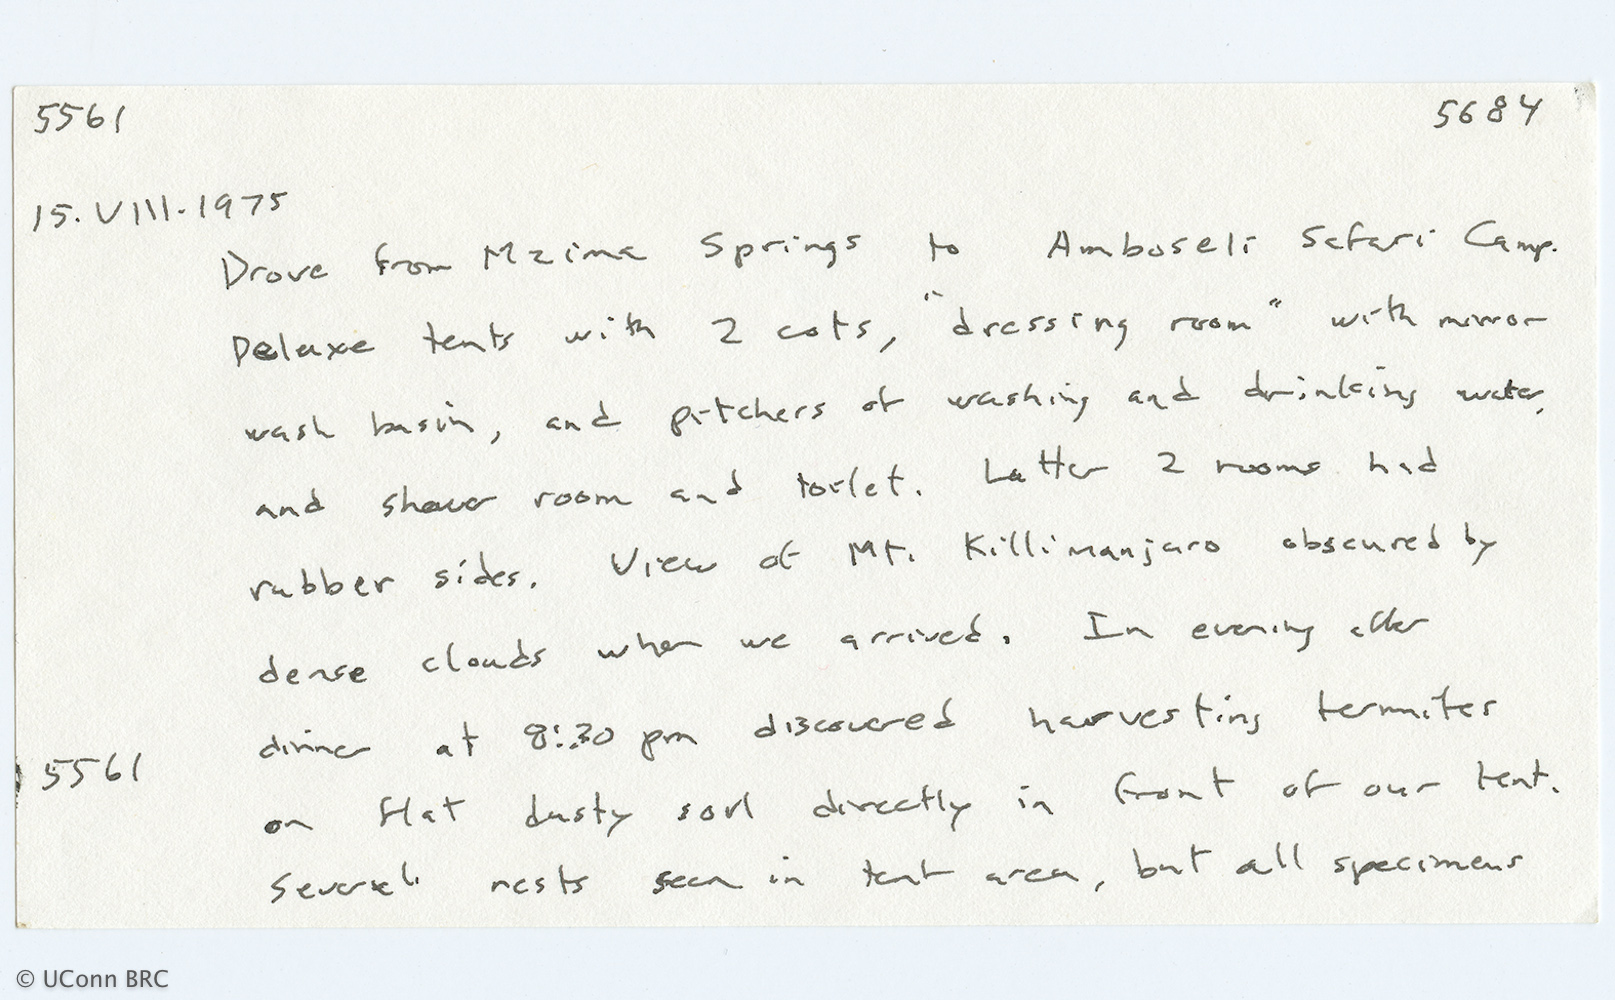 5561 5684
15.VIII.1975
Drove from Mzima Springs to Amboseli Safari Camp.
Deluxe tents with 2 cots, "dressing room" with mirror
wash basin, and pitchers of washing and drinking water,
and shower room and toilet. Latter 2 rooms had
rubber sides. View of Mt. Killimanjaro obscured by
dense clouds when we arrived. In evening after
dinner at 8:30 pm discovered harvesting termites
5561 on flat dusty soil directly in front of our tent.
Several nests seen in tent area, but all specimens
© UConn BRC